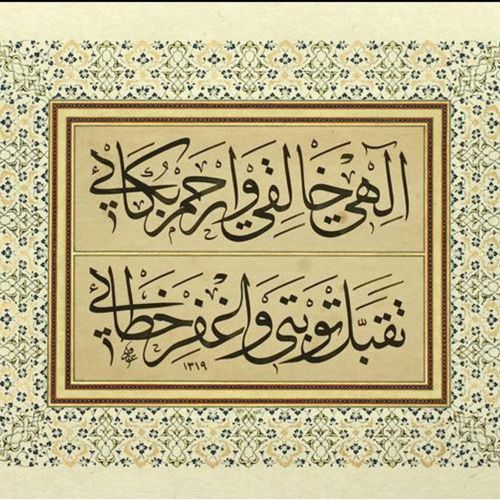 الهي خالقي وارحم بكائي
تقبل توبتي واغفر خطائي
١٣١٩